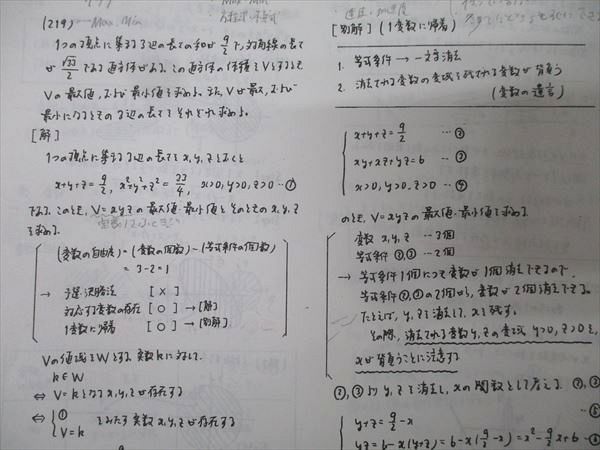 (219)
1つの頂点に集まる3辺の長さの和が 9/2 で,対角線の長さ
が √33/2 である直方体がある。この直方体の体積をVとするとき
Vの最大値,および最小値を求めよ。また,Vが最大,および
最小になるときの3辺の長さをそれぞれ求めよ。
[解]
1つの頂点に集まる3辺の長さをx,y,zとおくと
x+y+z=9/2, x²+y²+z²=33/4, x>0,y>0,z>0 …①
である。このとき,V=xyzの最大値・最小値とそのときのx,y,z
を求める。
(変数の自由度)=(変数の個数)-(等式条件の個数)
=3-2=1
→ 予選・決勝法 [×]
対応する変数の存在 [○] →[解]
1変数に帰着 [○] →[別解]
Vの値域をWとする。実数kに対して,
k∈W
⇔ V=kとなるx,y,zが存在する
⇔ { ①
V=k をみたす実数x,y,zが存在する
[別解] (1変数に帰着)
1. 等式条件 → 一文字消去
2. 消去される変数の変域を残される変数が背負う
(変数の遺言)
x+y+z=9/2 …②
xy+xz+yz=6 …③
x>0,y>0,z>0 …④
のとき,V=xyzの最大値・最小値を求める。
変数 x,y,z …3個
等式条件 ②,③ …2個
→ 等式条件1個につき変数が1個消去できるので,
等式条件②,③の2個から,変数が2個消去できる。
たとえば,y,zを消去して,xを残す。
その際,消去される変数y,zの変域 y>0,z>0を,
xが背負うことに注意する
②,③よりy,zを消去し,xの関数として考える。②,③
y+z=9/2-x …⑤
yz=6-x(y+z)=6-x(9/2-x)=x²-9/2x+6 …⑥